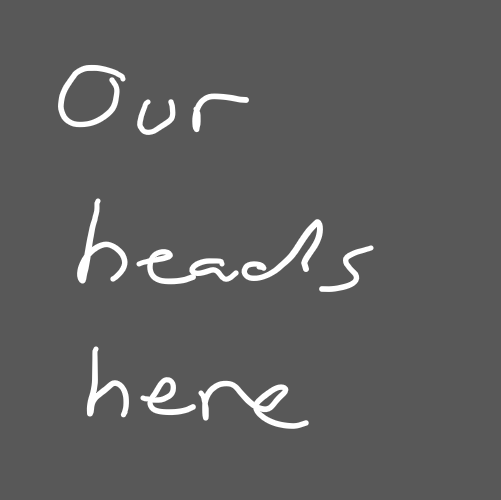 Our
heads
here